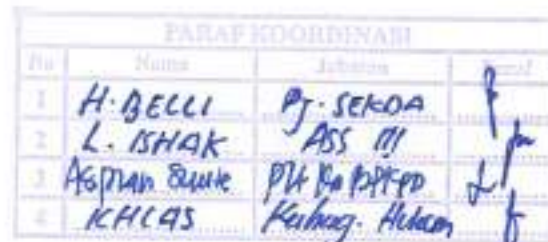 PARAF KOORDINASI
No Nama Jabatan Paraf
1 H. BELLI Pj. SEKDA
2 L. ISHAK ASS III
3 Plt Ka BPKPD
4 ICHLAS Kabag. Hukum